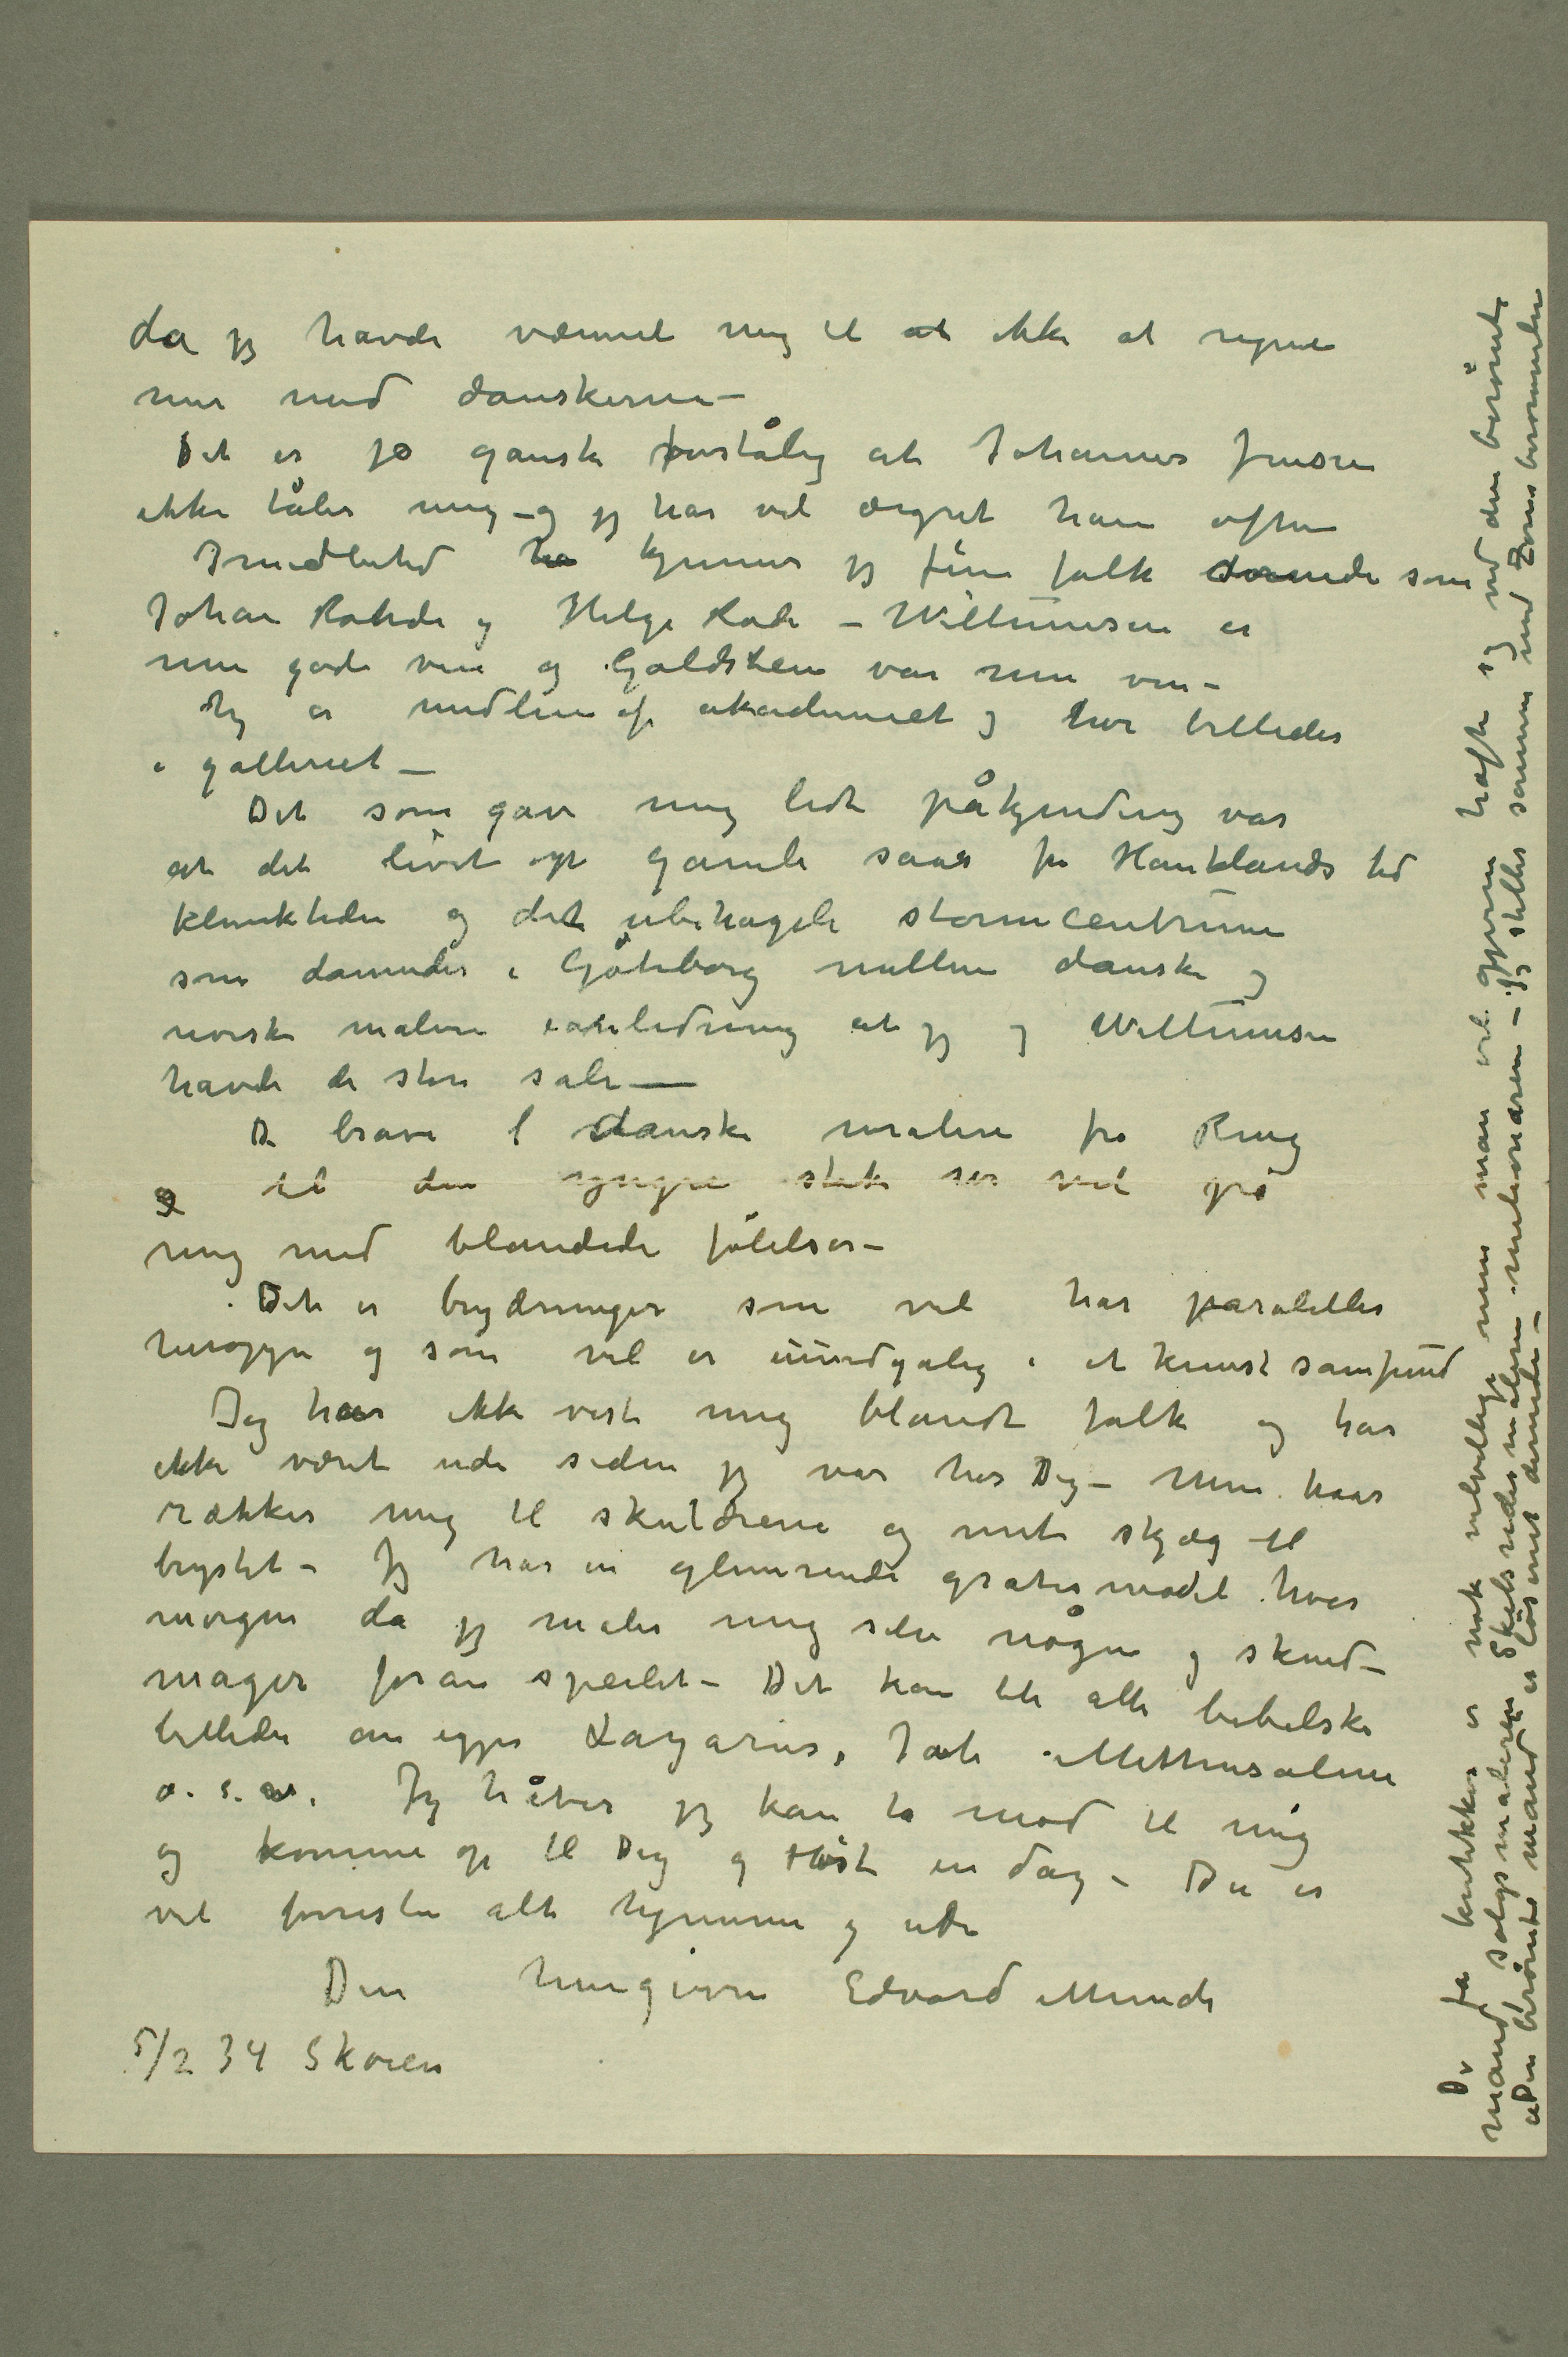 da jeg havde vænnet mig til at ikke at regne
mer med danskerne –
Det er jo ganske forståelig at Johannes Jensen
ikke tåler mig – og jeg har vel ærgret ham often
Imidlertid ha kjenner jeg fine folk dernede som
Johan Rohde og Helge Rode – Willumsen er
min gode ven og Goldstein var min ven –
Jeg er medlem af akademiet og har billeder
i galleriet –
Det som gav mig lidt påkjending var
at det livet opp gamle saar fra Hanklands tid
kliniktiden og det ubehagele stormcentrum
som dannedes i Gøteborg mellem danske og
norske malere i anledning at jeg og Willumsen
havde de store sale –
De brave danske malere fra Ring
og til den yngre slekt ser vel på
mig med blandede følelser –
Det er brydninger som vel har paraleller
heroppe og som vel er uundgålig i et kunstsamfund
Jeg har ikke vist mig blandt folk og har
ikke været ude siden jeg var hos Dig – Min haar
rækker mig til skuldrene og mit skjæg til
brystet – Jeg har en glimrende gratis model hver
morgen da jeg maler mig selv nøgen og skind-
mager foran speilet – Det kan bli alle bibelske
billeder om igjen Lazarus, Job Methusalem
o.s.v. Jeg håber jeg kan ta mod til mig
og komme op til Dig og Høst en dag – Du er
vel forresten alt hjemme og ude
Din hengivne Edvard Munch
5/2 34 Skøien
De få kritikker er nok velvillige men man vil gjerne hæfte sig ved den berømte
mand salgsmaleren Selskabsmaleren millionæren – Jeg stilles sammen med Zorns berømmelse
Den berømte mand er løsenet dernede –